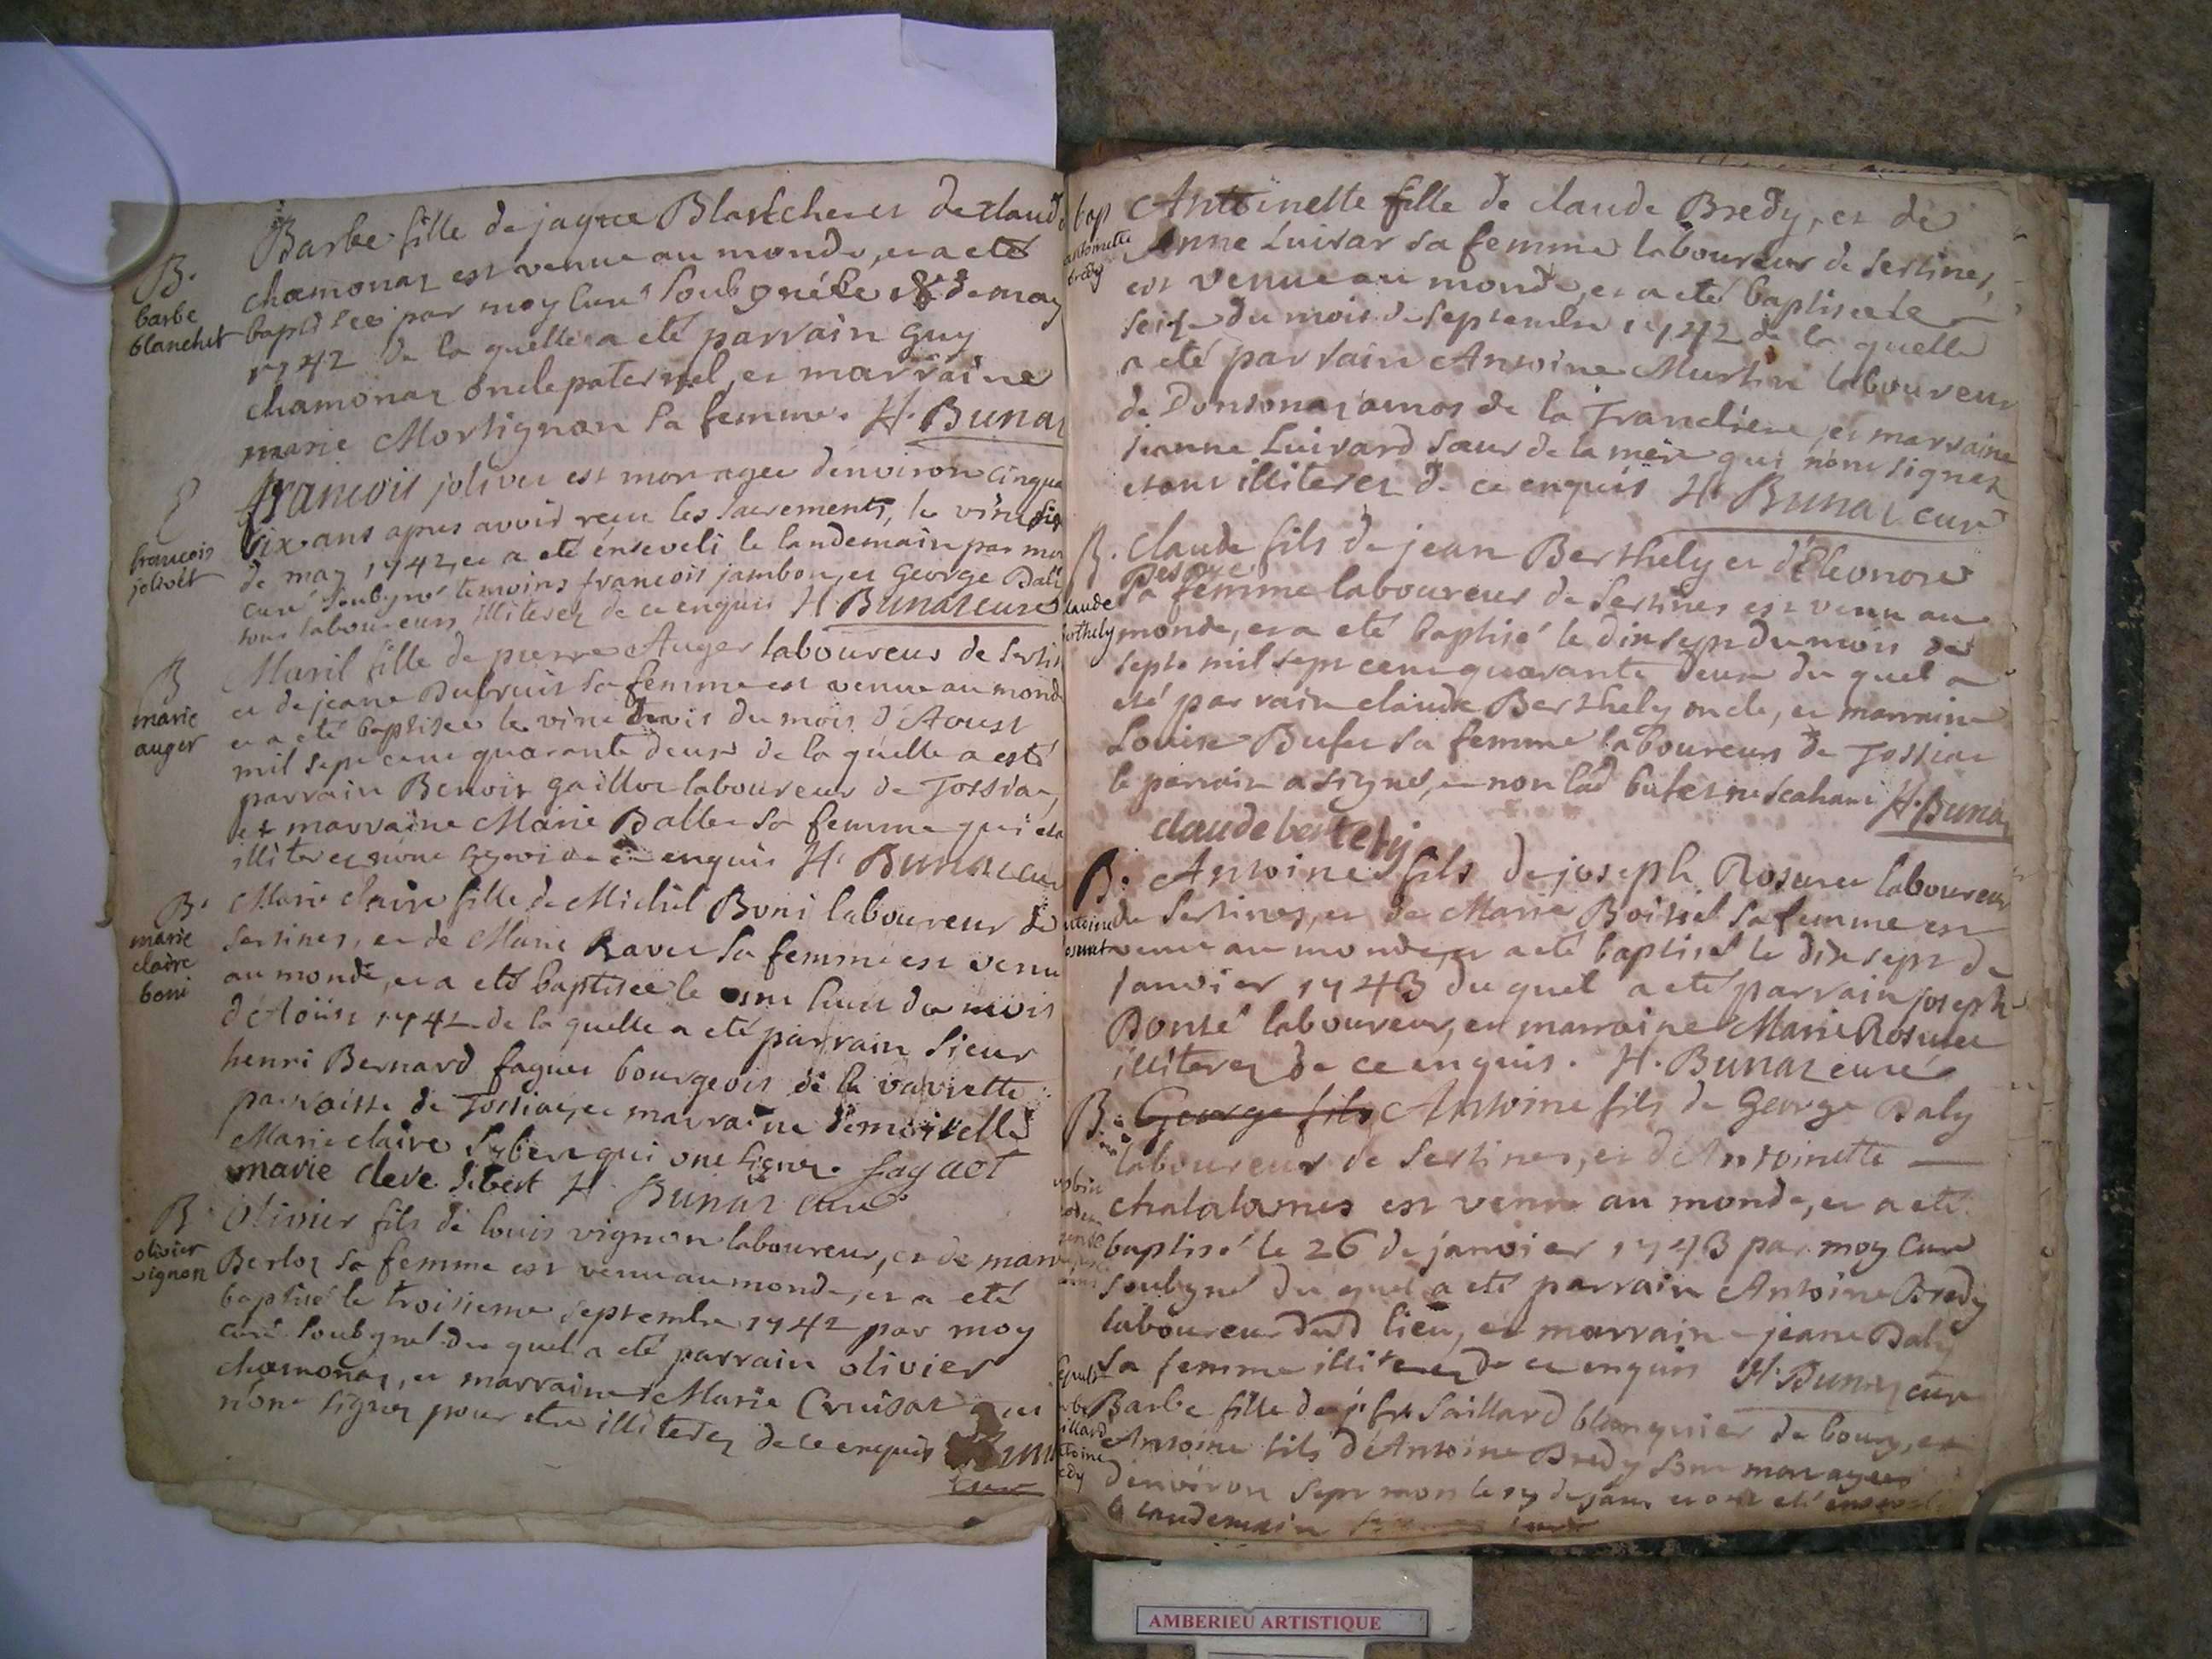 Barbe fille de jaque Blanchet et de claude
B.
barbe
blanchet
chamonaz est venue au monde, et a eté
baptisée par moy curé soubgné le 18 de may
1742 de la quelle a eté parrain guy
chamonaz oncle paternel, et marraine
marie Mortignon sa femme. H. Bunaz
françois jolivet est mort agee denviron cinquante
françois
jolivet
six ans apres avoir reçu les sacrements, le vint six
de may 1742, et a eté énseveli le landemain par moy
curé soubgné temoins françois jambon, et George Dali
tous laboureurs illiterez de ce enquis H. Bunaz curé
B
marie
auger
Marie fille de pierre Auger laboureur de Sertines
et de jeane Dubruit sa femme est venue au monde
et a eté baptisee le vint trois du mois d'Aoust
mil sept cent quarante deux de la quelle a esté
parrain Benoit gaillot laboureur de Tossiat,
et marraine Marie Ballet sa femme qui
illiterez de ce enquis H. Bunaz curé
B.
marie
claire
boni
Marie claire fille de Michel Boni laboureur de
Sertines, et de Marie Ravet sa femme est venue
au monde, et a eté baptisée le du mois
d'Aoüst 1742 de la quelle a eté parrain sieur
henri Bernard faguet bourgeois de la vavrette
parroisse de Tossiat, et marraine demoiselle
Marie claire Sybert qui ont signez. faguet
marie clere sibert H. Bunaz curé
B
olivier
vignon
Olivier fils de louis vignon laboureur, et de marie
Berloz sa femme est venu au monde, et a eté
baptisé le troisieme septembre 1742 par moy
curé soubgné du quel a eté parrain olivier
chamonaz, et marraine Marie Cruisat qui
n'ont signez pour etre illiterez de ce enquis
curé
bap
antoinette
bredy
Antoinette fille de claude Bredy, et de
Anne Luisar sa femme laboureur de Sertines,
est venue au monde, et a eté baptisée le
seize du mois de septembre 1742 de la quelle
a eté parrain Antoine Murtin laboureur
de la Franclieu, et marraine
jeanne Luisard sœur de la mere qui n'ont signez
etant illiterez de ce enquis H. Bunaz curé
B.
claude
berthely
claude fils de jean Berthely et d'Eleonore
sa femme laboureur de Sertines est venu au
monde, et a eté baptisé le dix sept du mois de
septe mil sept cent quarante deux du quel a
eté parrain claude Berthely oncle, et marraine
Louise Bufet sa femme laboureurs de Tossiat
le parrain a signé, et non lad bufet ne scachant H. Bunaz
claude bertely
B.
Antoine fils de joseph Rosuret laboureur
de Sertines, et de Marie Boissel sa femme est
venu au monde, et a eté baptisé le dix sept de
janvier 1743 du quel a eté parrain joseph
Donsé laboureur, et marraine Marie Rosuret
illiterez de ce enquis. H. Bunaz curé
B.
George fils Antoine fils de George Daly
laboureur de Sertines, et d'Antoinette
est venu au monde, et a eté
baptisé le 26 de janvier 1743 par moy curé
soubgné du quel a eté parrain Antoine Bredy
laboureur dud lieu, et marraine jeane Daly
sa femme illiterez de ce enquis H. Bunaz curé
Barbe fille de Saillard blanquier de bourg, et
Antoine fils d'Antoine Bredy sont mort agees
denviron sept mois le 17 de janv et ont eté
le landemain
AMBERIEU ARTISTIQUE